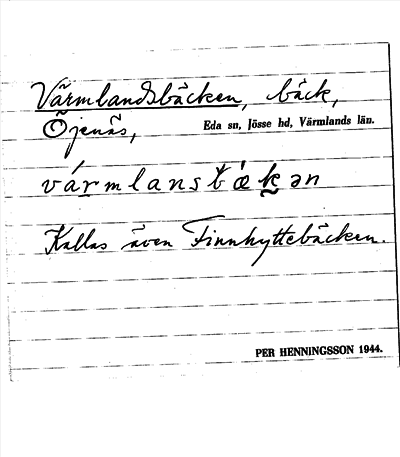 Värmlandsbäcken, bäck,
Öjenäs, Eda sn, Jösse hd, Värmlands län.
vármlansbækən
Kallas även Finnhyttebäcken.
PER HENNINGSSON 1944.